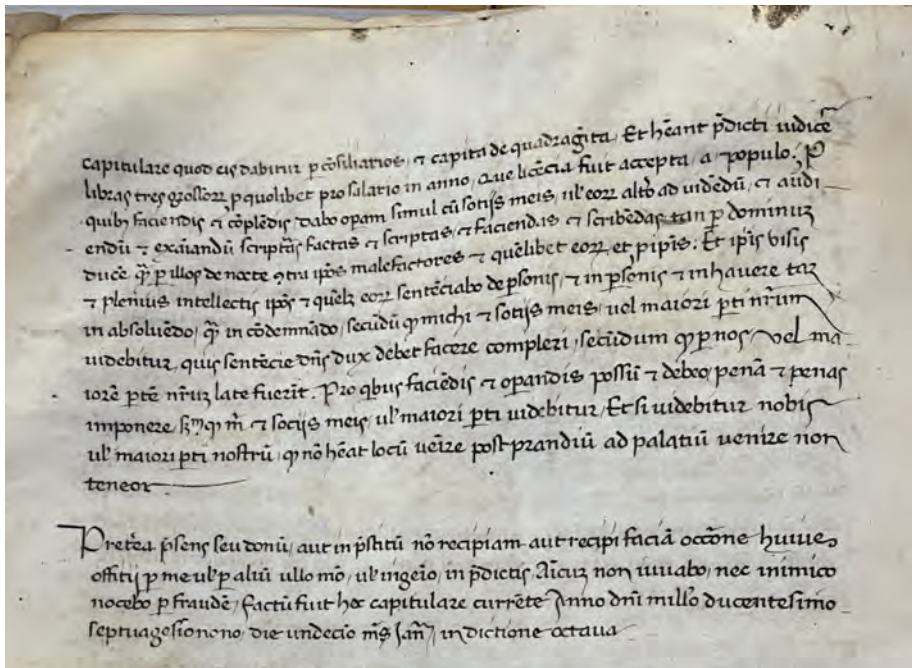 capitulare quod eis dabitur p cōsiliarios, ⁊ capita de quadragīta, Et hēant p̄dicti iudicē
libras tres grossoꝝ p quolibet pro salario in anno, Que licēcia fuit accepta, a populo. P
quibꝫ faciendis ⁊ cōplēdis dabo opam simul cū sotijs meis, ul' eoꝝ alt̄o ad uidēdū, ⁊ audi
endū ⁊ exaīandū scripturas factas ⁊ scriptas, ⁊ faciendas ⁊ scribēdas, tan p dominuꝫ
ducē q̄ p illos de nocte ꝯtra ip̄os malefactores ⁊ quēlibet eoꝝ, et p ip̄is. Et ip̄is uisis
⁊ plenius intellectis ip̄os ⁊ quēlꝫ eoꝝ sentētiabo de p̄sonis, ⁊ in p̄sonis ⁊ in hauere taꝫ
in absoluēdo, q̄ in cōdemnādo, secūdū ꝙ michi ⁊ sotijs meis, uel maiori p̄ti nr̄um
uidebitur, quis sentētie dn̄s dux debet facere compleri, secūdum ꝙ p nos uel ma
iorē p̄tē nr̄uꝫ late fuerīt. Pro qbus faciēdis ⁊ opandis possū ⁊ debeo, penā ⁊ penas
imponere, sm̄ ꝙ m̄ ⁊ socijs meis, ul' maiori p̄ti uidebitur, Et si uidebitur nobis
ul' maiori p̄ti nostrū, ꝙ nō hēat locū uēire post prandiū ad palatiū uenire non
teneor
Pretea p̄sens seu donū, aut inp̄stitū nō recipiam aut recipi faciā occōne huius
offitij p me ul' p aliū ullo mō, ul' ingeīo, in p̄dictis Aīcuꝫ non iuuabo, nec inimico
nocebo p fraudē, factū fuit hoc capitulare currēte Anno dn̄i millo ducentesimo
septuagesīonono, die undecīo m̄s Ian̄ indictione octaua